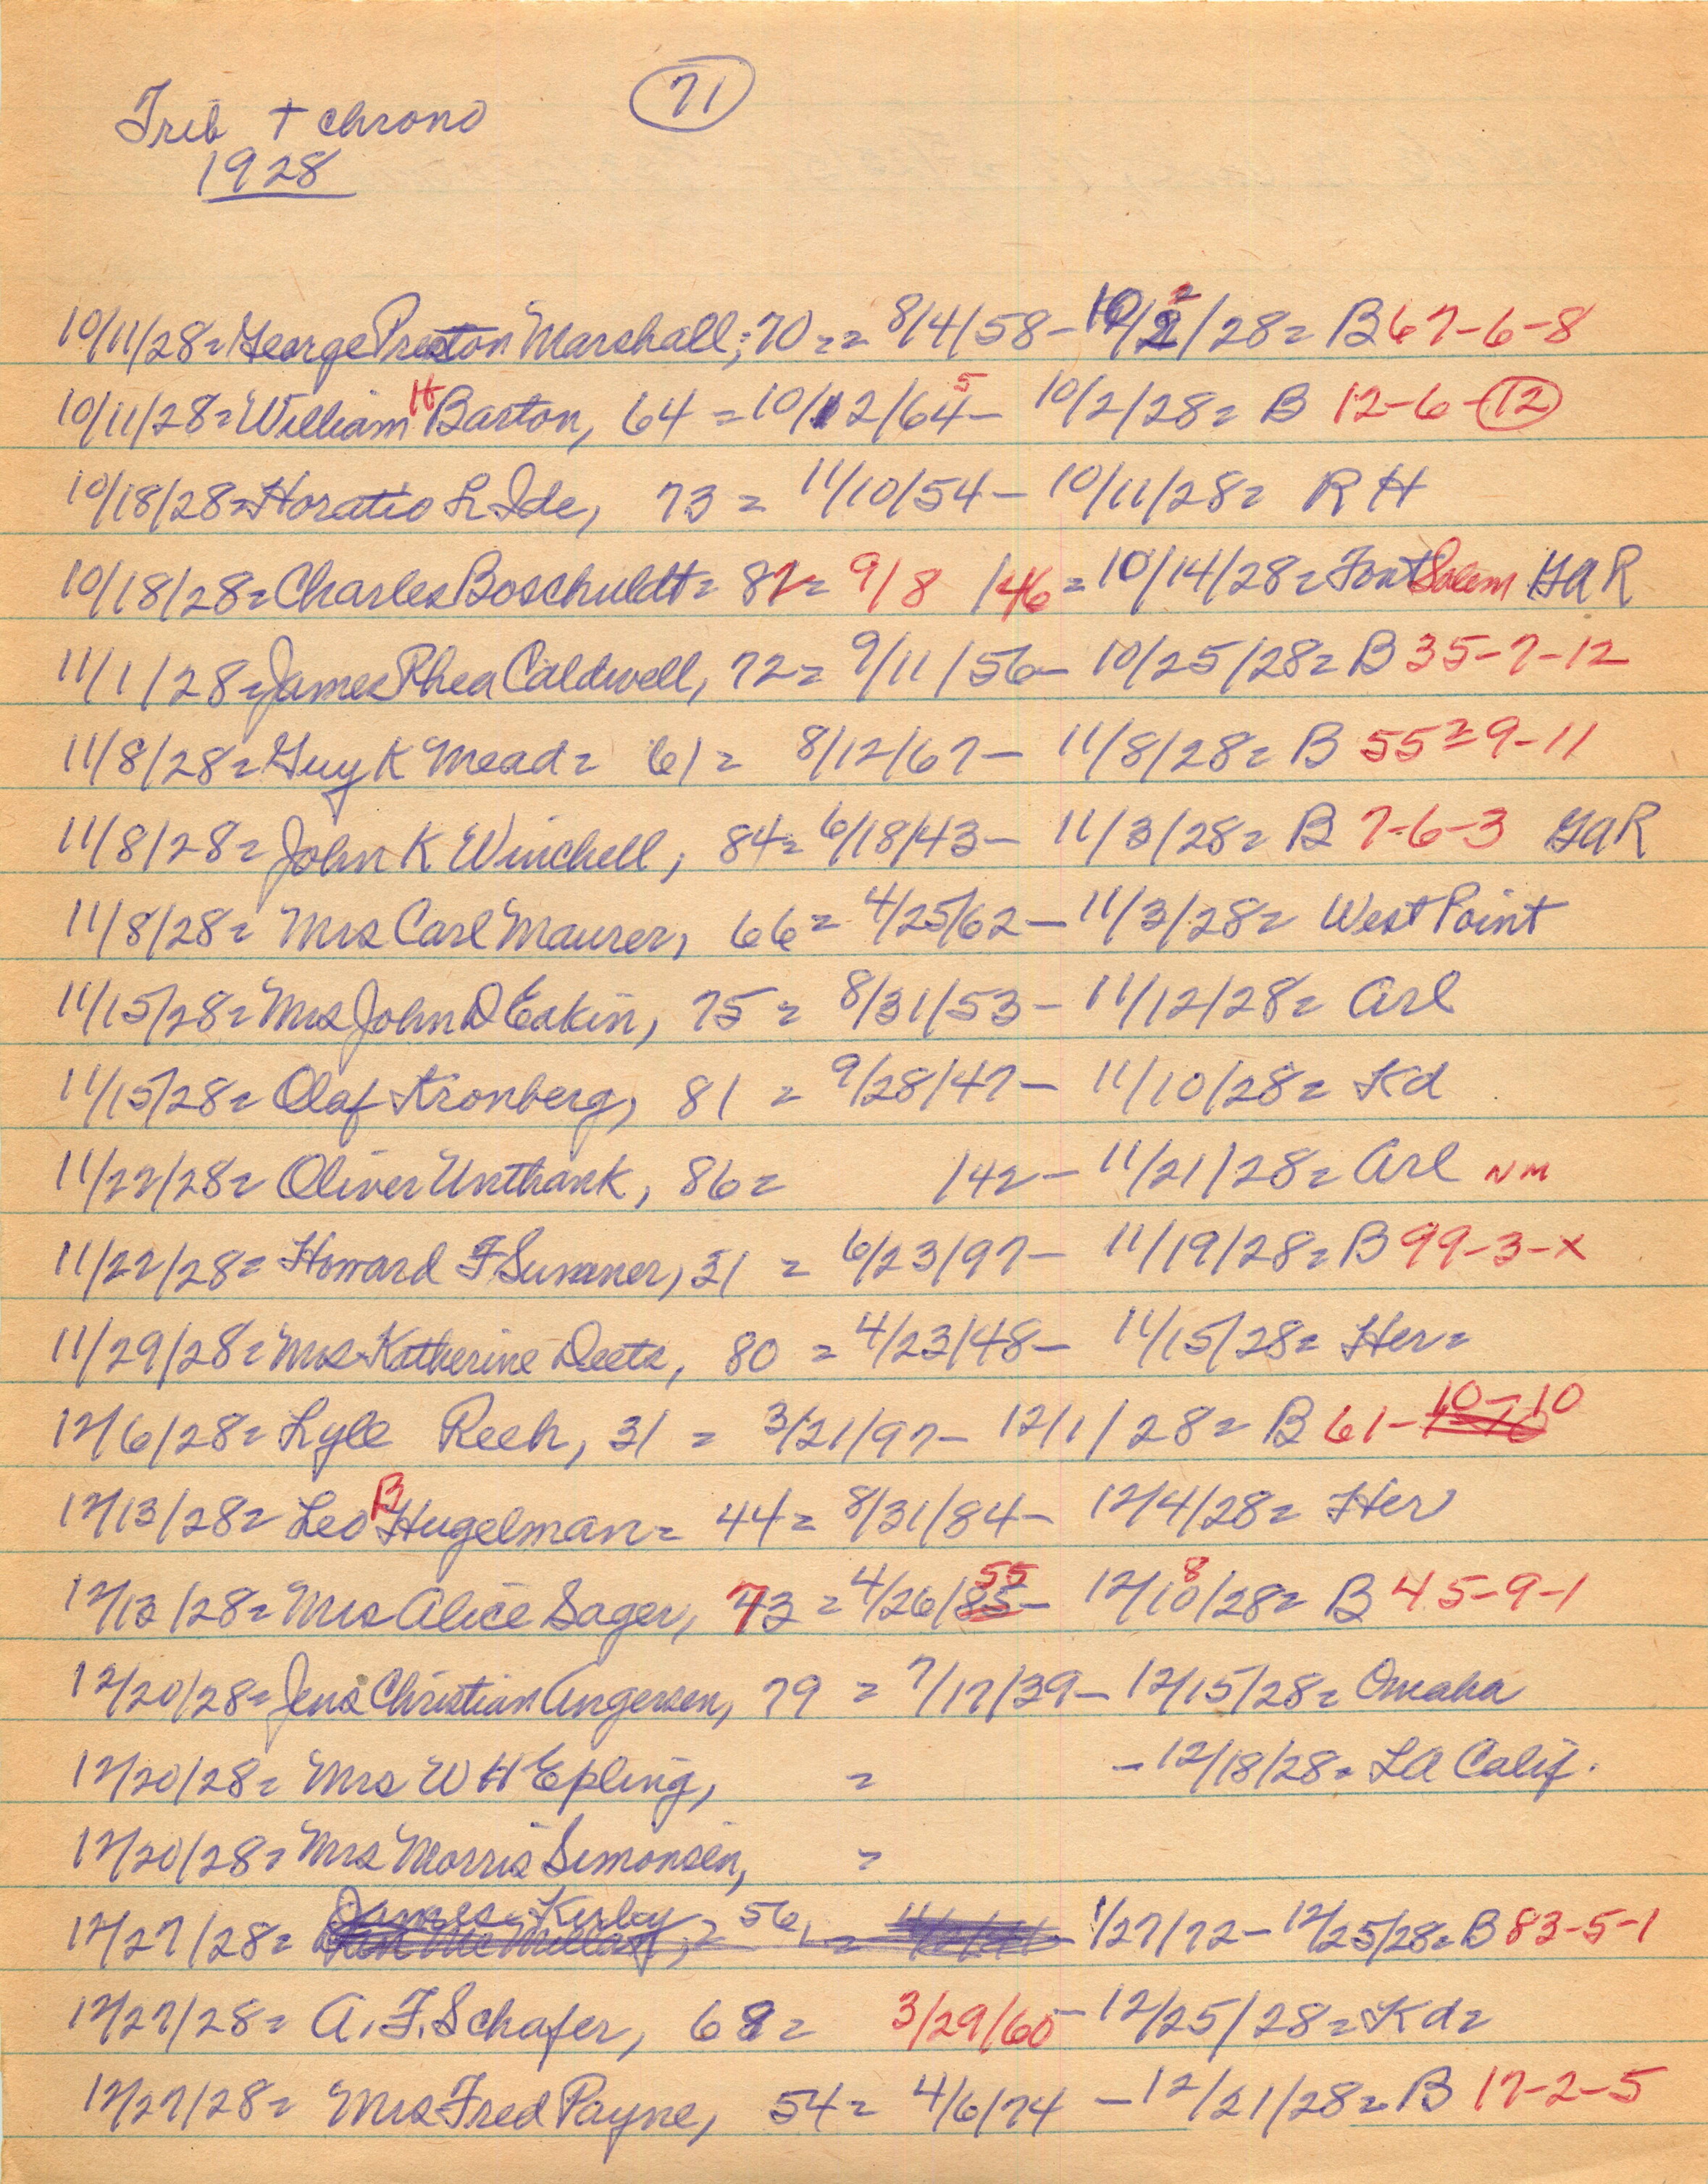 71
Trib + chrono
1928
10/11/28= George Preston Marshall, 70 == 8/4/58- 10/2/28= B 67-6-8
10/11/28= William H Barton, 64 = 10/12/64 5 - 10/2/28= B 12-6-12
10/18/28= Horatio L Ide, 73 = 11/10/54- 10/11/28= R H
10/18/28= Charles Boschuldt= 82= 9/8/46 = 10/14/28= Font Salem GAR
11/1/28= James Rhea Caldwell, 72= 9/11/56- 10/25/28= B 35-7-12
11/8/28= Guy K Mead= 61= 8/12/67- 11/8/28= B 55=9-11
11/8/28= John K Winchell, 84= 6/18/43- 11/3/28= B 7-6-3 GAR
11/8/28= Mrs Carl Maurer, 66= 4/25/62- 11/3/28= West Point
11/15/28= Mrs John D Eakin, 75= 8/31/53- 11/12/28= Arl
11/15/28= Olaf Kronberg, 81 = 9/28/47- 11/10/28= Kd
11/22/28= Oliver Unthank, 86= /42- 11/21/28= Arl NM
11/22/28= Howard F Sumner, 31 = 6/23/97- 11/19/28= B 99-3-x
11/29/28= Mrs Katherine Deets, 80 = 4/23/48- 11/15/28= Her=
12/6/28= Lyle Reeh, 31 = 3/21/97- 12/1/28= B 61-10-10
12/13/28= Leo B Hugelman= 44= 8/31/84- 12/4/28= Her
12/13/28= Mrs Alice Sager, 73 = 4/26/55- 12/10 8/28= B 45-9-1
12/20/28= Jens Christian Angersen, 79 = 7/17/39- 12/15/28= Omaha
12/20/28= Mrs W H Epling, = -12/18/28= LA Calif.
12/20/28= Mrs Morris Simonsen, =
12/27/28= James Kirby= 56, = 1/27/72- 12/25/28= B 83-5-1
12/27/28= A. F. Schafer, 68= 3/29/60- 12/25/28= Kd=
12/27/28= Mrs Fred Payne, 54= 4/6/74 -12/21/28= B 17-2-5